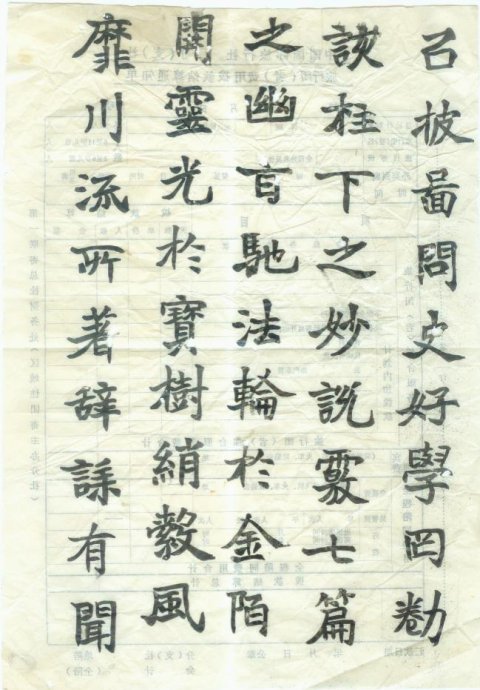 召披啚問史好學罔勌
該柱下之妙說覈七篇
之幽旨馳法輪於金陌
開靈光於寶樹綃縠風
靡川流所著辞誄有聞